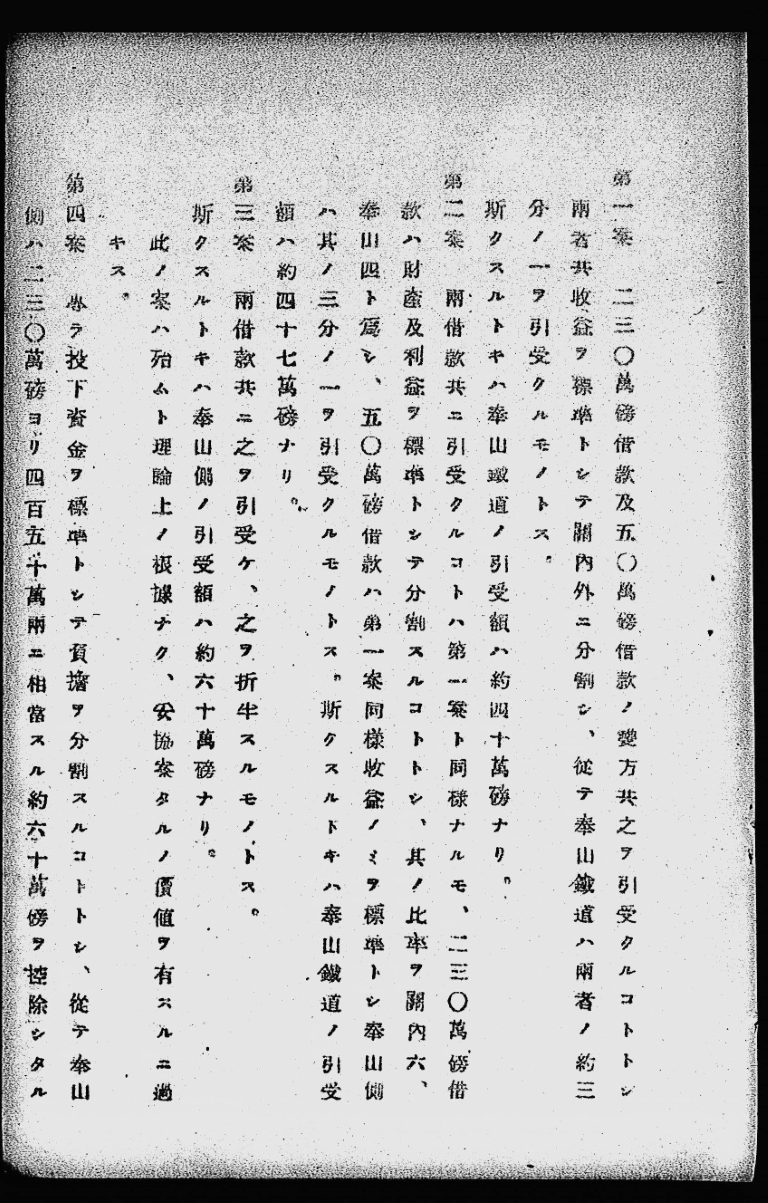 第一案　二三〇萬磅借款及五〇萬磅借款ノ雙方共之ヲ引受クルコトトシ
兩者共收益ヲ標準トシテ關內外ニ分割シ、從テ奉山鐵道ハ兩者ノ約三
分ノ一ヲ引受クルモノトス。
斯クスルトキハ奉山鐵道ノ引受額ハ約四十萬磅ナリ。
第二案　兩借款共ニ引受クルコトハ第一案ト同樣ナルモ、二三〇萬磅借
款ハ財產及利益ヲ標準トシテ分割スルコトトシ、其ノ比率ヲ關內六、
奉山四ト爲シ、五〇萬磅借款ハ第一案同樣收益ノミヲ標準トシ奉山側
ハ其ノ三分ノ一ヲ引受クルモノトス。斯クスルトキハ奉山鐵道ノ引受
額ハ約四十七萬磅ナリ。
第三案　兩借款共ニ之ヲ引受ケ、之ヲ折半スルモノトス。
斯クスルトキハ奉山側ノ引受額ハ約六十萬磅ナリ。
此ノ案ハ殆ムト理論上ノ根據ナク、妥協案タルノ價値ヲ有スルニ過
キス。
第四案　專ラ投下資金ヲ標準トシテ負擔ヲ分割スルコトトシ、從テ奉山
側ハ二三〇萬磅ヨリ四百五十萬兩ニ相當スル約六十萬磅ヲ控除シタル